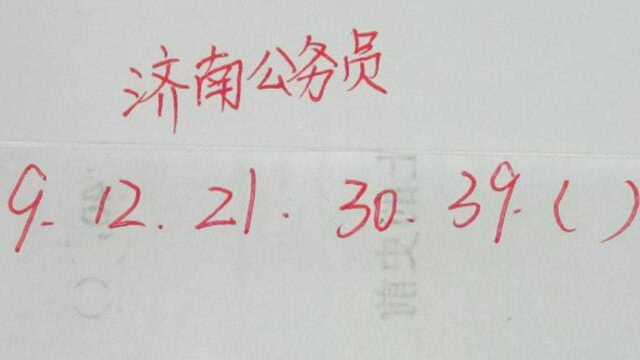 济南公务员
9. 12. 21. 30. 39. ( )